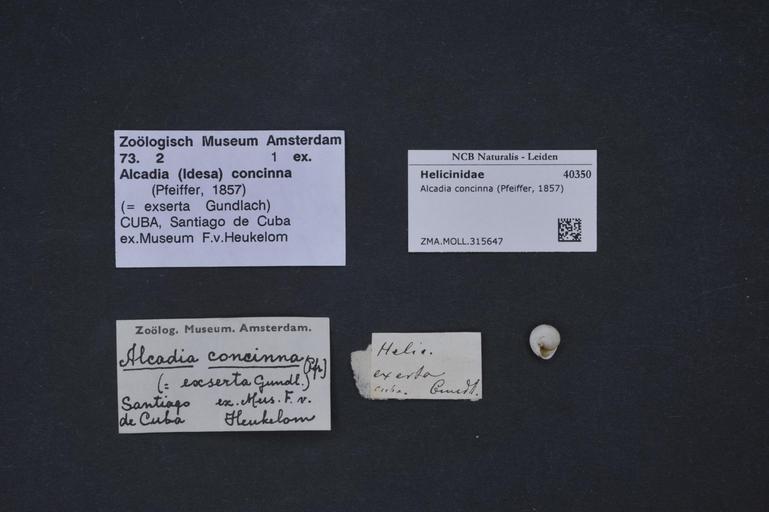 Zoölogisch Museum Amsterdam
73. 2 1 ex.
Alcadia (Idesa) concinna
(Pfeiffer, 1857)
(= exserta Gundlach)
CUBA, Santiago de Cuba
ex.Museum F.v.Heukelom
NCB Naturalis - Leiden
Helicinidae 40350
Alcadia concinna (Pfeiffer, 1857)
ZMA.MOLL.315647
Zoölog. Museum. Amsterdam.
Alcadia concinna (Pfr.)
(= exserta Gundl.)
Santiago ex. Mus. F. v.
de Cuba Heukelom
Helic.
exerta
Cuba. Gundl.